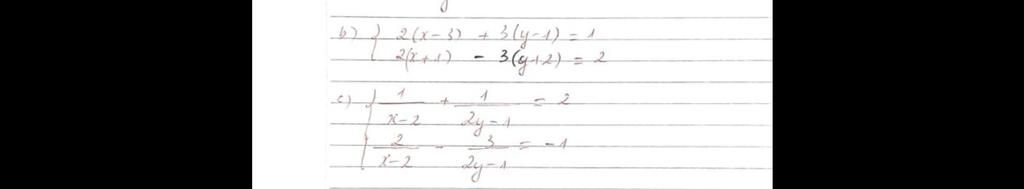 b) { 2(x-3) + 3(y-1) = 1
2(x+1) - 3(y+2) = 2
c) { 1/(x-2) + 1/(2y-1) = 2
2/(x-2) - 3/(2y-1) = -1